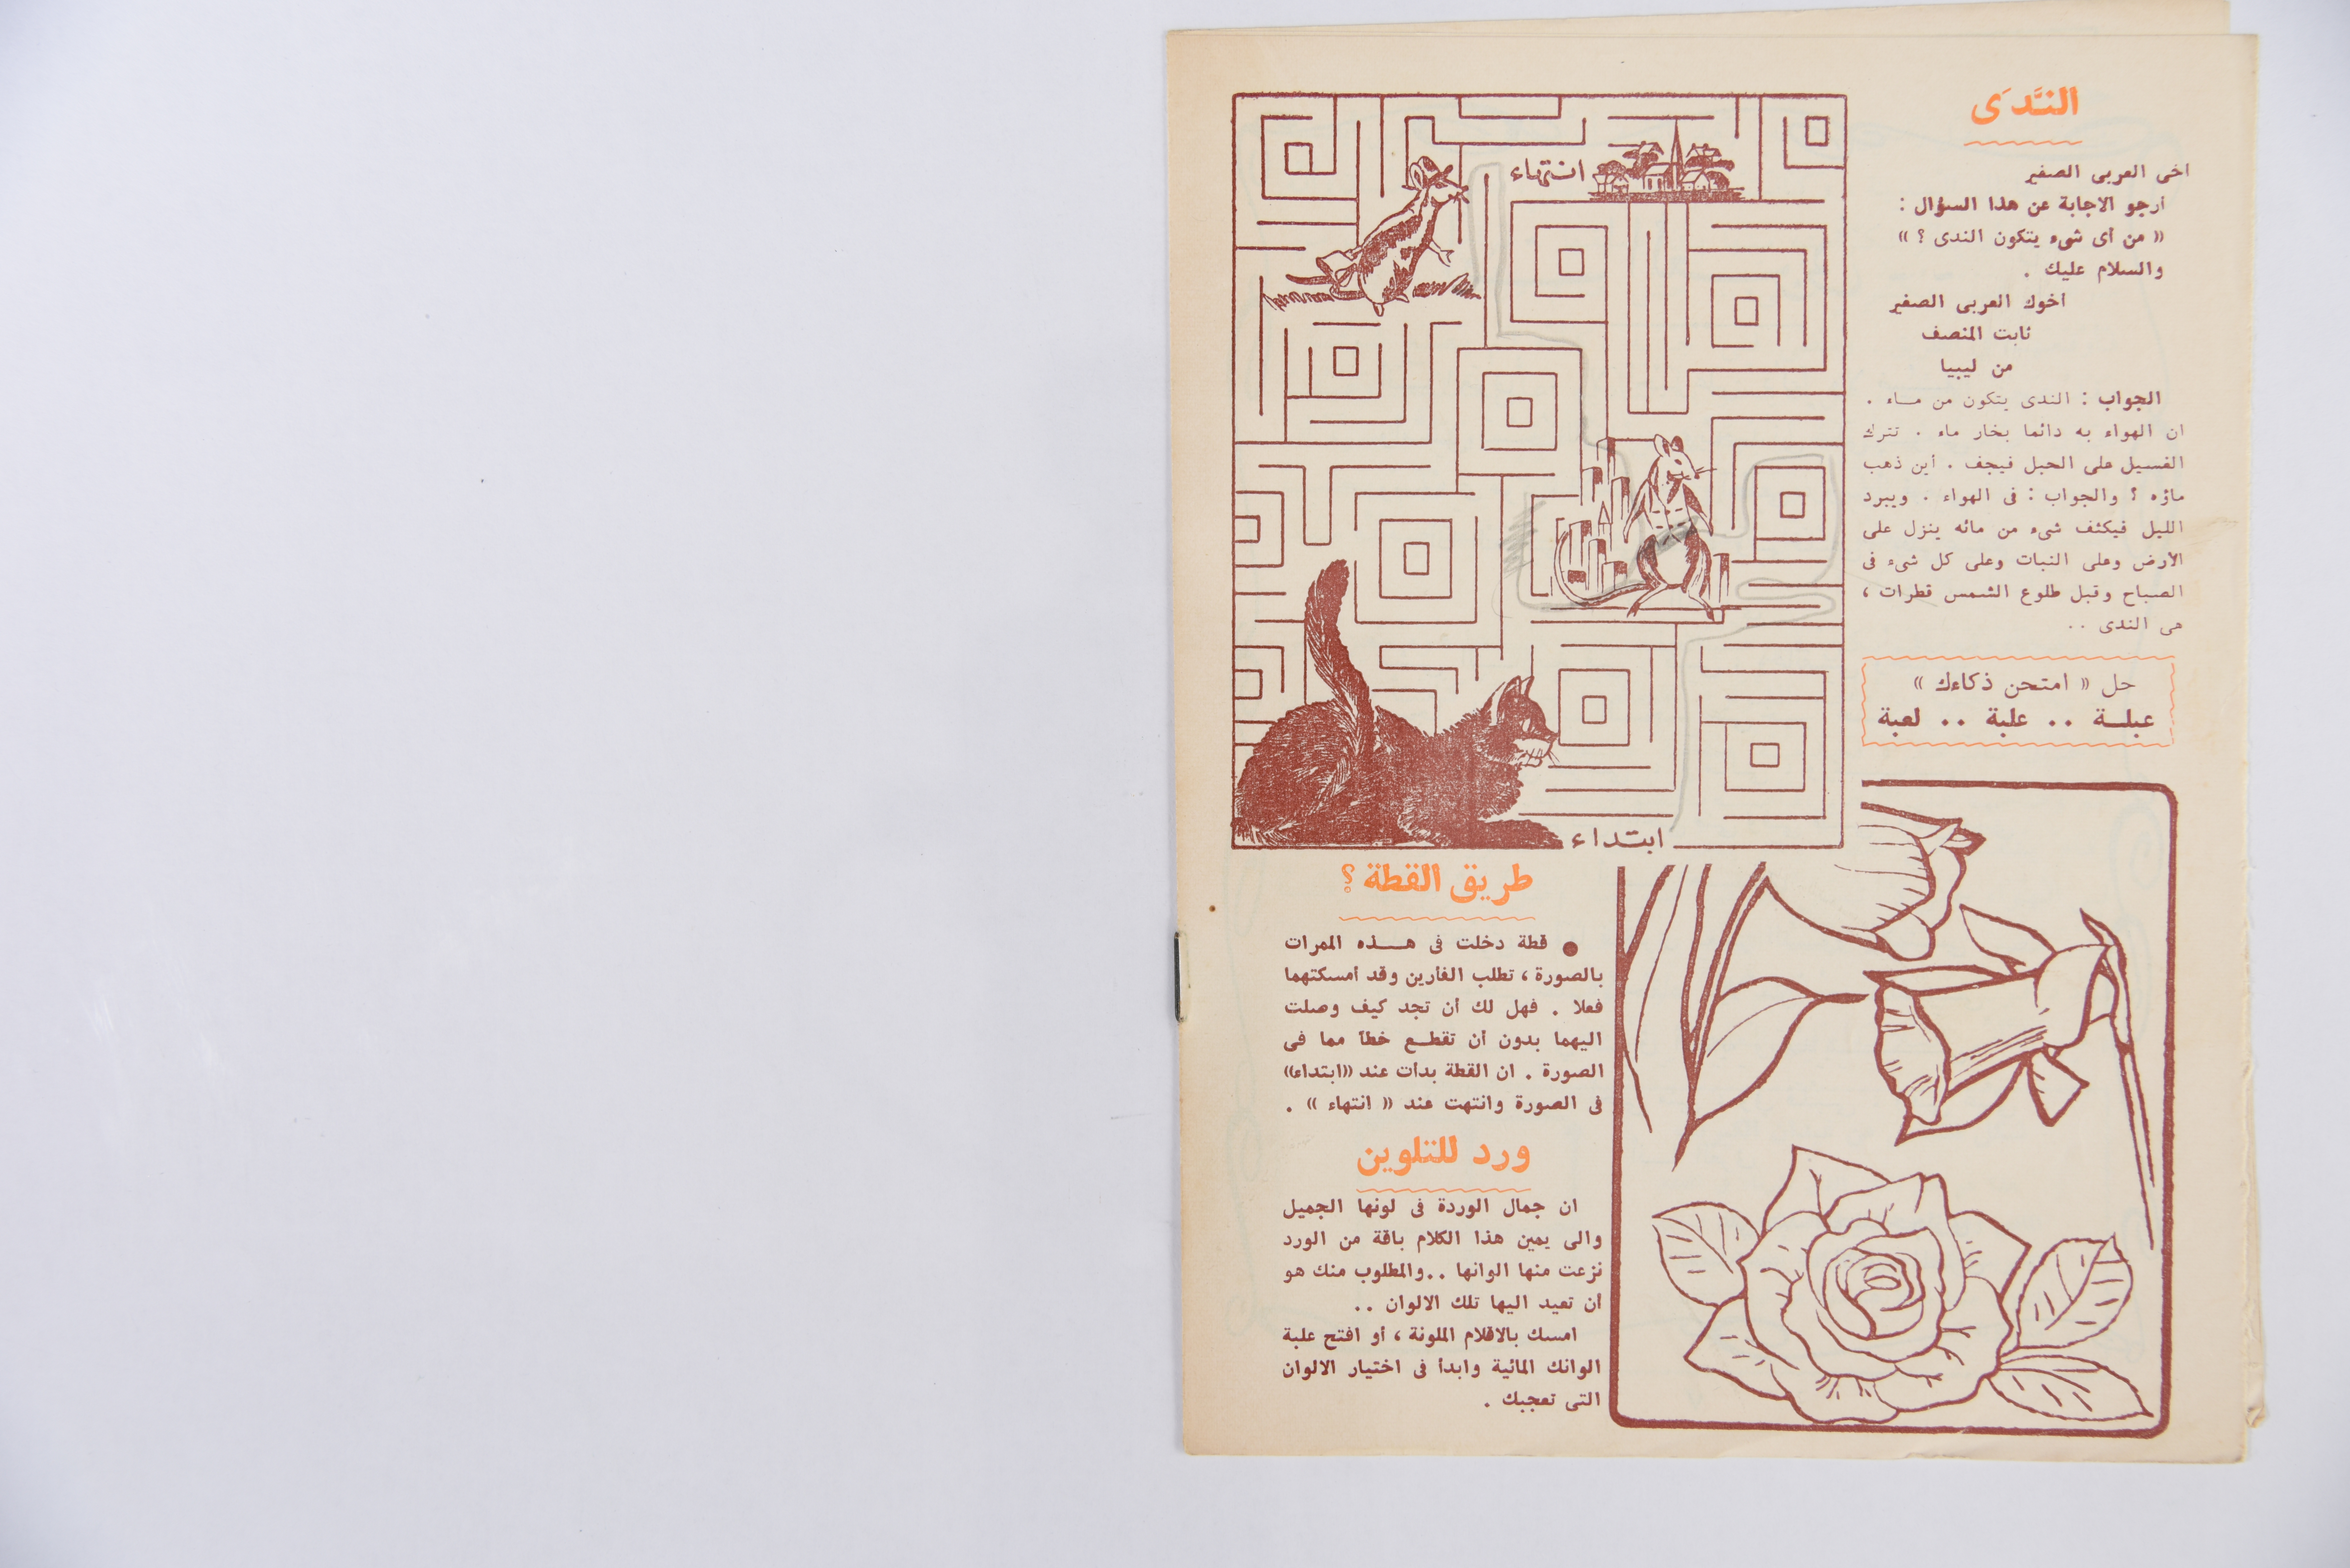 النَّدَى
اخى العربى الصغير
أرجو الاجابة عن هذا السؤال :
« من أى شىء يتكون الندى ؟ »
والسلام عليك .
أخوك العربى الصغير
ثابت المنصف
من ليبيا
الجواب : الندى يتكون من مــاء .
ان الهواء به دائما بخار ماء . تترك
الغسيل على الحبل فيجف . أين ذهب
ماؤه ؟ والجواب : فى الهواء . ويبرد
الليل فيكثف شىء من مائه ينزل على
الأرض وعلى النبات وعلى كل شىء فى
الصباح وقبل طلوع الشمس قطرات ،
هى الندى ..
حل « امتحن ذكاءك »
عبلــة .. علبة .. لعبة
انتهاء
ابتداء
طريق القطة ؟
● قطة دخلت فى هــذه الممرات
بالصورة ، تطلب الفأرين وقد أمسكتهما
فعلا . فهل لك أن تجد كيف وصلت
اليهما بدون أن تقطــع خطا مما فى
الصورة . ان القطة بدأت عند «ابتداء»
فى الصورة وانتهت عند « انتهاء » .
ورد للتلوين
ان جمال الوردة فى لونها الجميل
والى يمين هذا الكلام باقة من الورد
نزعت منها الوانها ..والمطلوب منك هو
أن تعيد اليها تلك الالوان ..
امسك بالاقلام الملونة ، أو افتح علبة
الوانك المائية وابدأ فى اختيار الالوان
التى تعجبك .